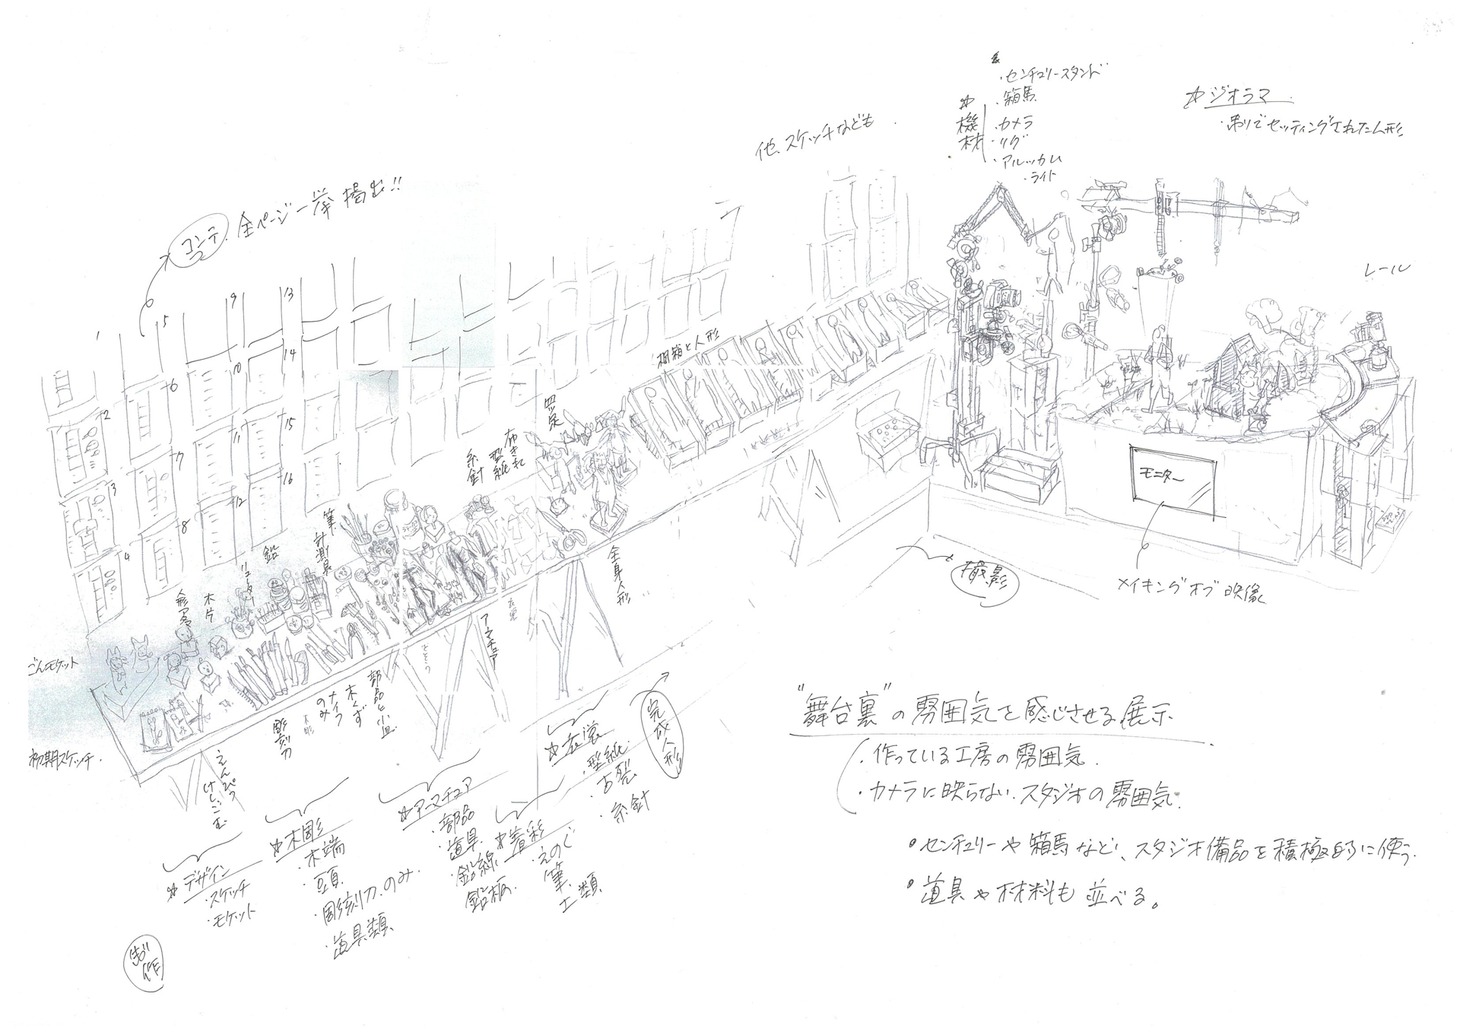 ・センチュリースタンド
・箱馬
☆機材
・カメラ
・リグ
・アルッカム
・ライト
☆ジオラマ
・吊りでセッティングされた人形
他、スケッチなども
コンテ 全ページ一挙掲出!!
レール
桐箱と人形
1
5
9
13
2
6
10
14
3
7
11
15
4
8
12
16
布きれ
型紙
糸針
筆
計測具
鉛
リューター
木片
ごんモケット
初期スケッチ
えんぴつ
けしごむ
彫刻刀
のみ
ナイフ
木くず
部品と小皿
アマチュア
全身人形
完成人形
モニター
メイキングオブ映像
撮影
☆デザイン
・スケッチ
・モケット
☆木彫
・木端
・豆頁
・彫刻刀、のみ
・道具類
☆アーマチュア
・部品
・道具
・鉛線
鉛板
☆着彩
・えのぐ
・筆
・土類
☆衣裳
・型紙
・古裂
・糸針
制作
"舞台裏"の雰囲気を感じさせる展示
・作っている工房の雰囲気
・カメラに映らない、スタジオの雰囲気
・センチュリーや箱馬など、スタジオ備品を積極的に使う
・道具や材料も並べる。